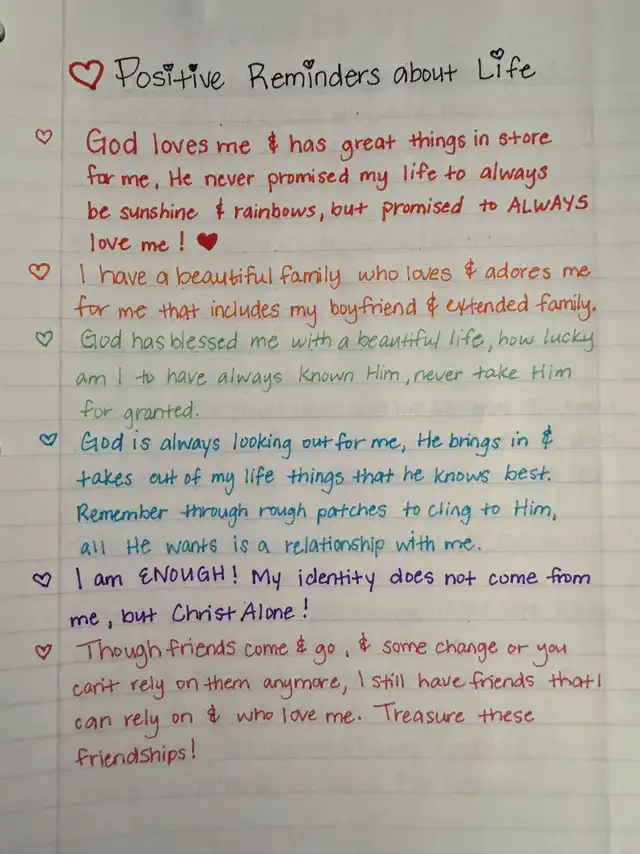 ♡ Positive Reminders about Life
♡ God loves me & has great things in store
for me, He never promised my life to always
be sunshine & rainbows, but promised to ALWAYS
love me! ♥
♡ I have a beautiful family who loves & adores me
for me that includes my boyfriend & extended family.
♡ God has blessed me with a beautiful life, how lucky
am I to have always known Him, never take Him
for granted.
♡ God is always looking out for me, He brings in &
takes out of my life things that he knows best.
Remember through rough patches to cling to Him,
all He wants is a relationship with me.
♡ I am ENOUGH! My identity does not come from
me, but Christ Alone!
♡ Though friends come & go, & some change or you
can't rely on them anymore, I still have friends that I
can rely on & who love me. Treasure these
friendships!